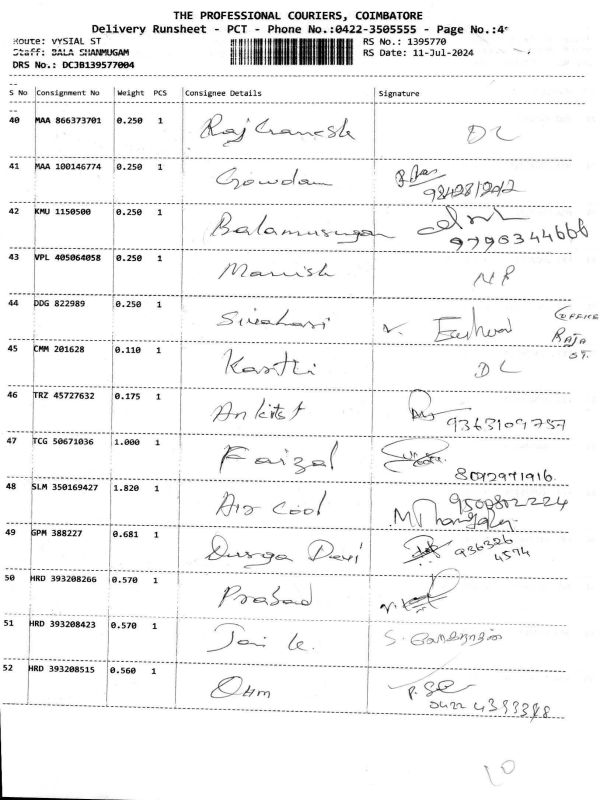 THE PROFESSIONAL COURIERS, COIMBATORE
Delivery Runsheet - PCT - Phone No.:0422-3505555 - Page No.:4
Route: VYSIAL ST RS No.: 1395770
Staff: BALA SHANMUGAM RS Date: 11-Jul-2024
DRS No.: DCJB139577004
S No Consignment No Weight PCS Consignee Details Signature
40 MAA 866373701 0.250 1 Raj Ganesh DL
41 MAA 100146774 0.250 1 Gowdam
42 KMU 1150500 0.250 1 Balamurugan 9798344666
43 VPL 405064058 0.250 1 Manish NR
44 DDG 822989 0.250 1 Sivahari V. Eashwar OFFICE RAJA ST.
45 CMM 201628 0.110 1 Karthi DL
46 TRZ 45727632 0.175 1 Ankitst 9363109757
47 TCG 50671036 1.000 1 Faizal 8092971916.
48 SLM 350169427 1.820 1 Air Cool 9500802224
49 GPM 388227 0.681 1 Durga Devi 936326 4574
50 HRD 393208266 0.570 1 Prasad
51 HRD 393208423 0.570 1 Jai k.
52 HRD 393208515 0.560 1 Ohm 0422 4393388
10